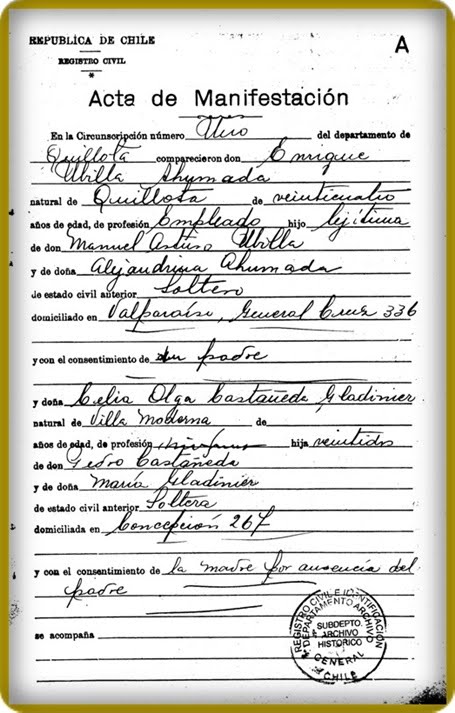 REPUBLICA DE CHILE
A
REGISTRO CIVIL
*
Acta de Manifestación
En la Circunscripción número Uno del departamento de
Quillota comparecieron don Enrique
Ubilla Ahumada
natural de Quillota de veinticuatro
años de edad, de profesión Empleado hijo lejítimo
de don Manuel Arturo Ubilla
y de doña Alejandrina Ahumada
de estado civil anterior Soltero
domiciliado en Valparaiso, General Cruz 336
y con el consentimiento de su padre
y doña Celia Olga Castañeda Gladinier
natural de Villa Moderna de
años de edad, de profesión hija veintidos
de don Pedro Castañeda
y de doña María Gladinier
de estado civil anterior Soltera
domiciliada en Concepción 267
y con el consentimiento de la madre por ausencia del
padre
se acompaña
REGISTRO CIVIL E IDENTIFICACIÓN
DEPARTAMENTO ARCHIVO
SUBDEPTO.
ARCHIVO
HISTORICO
GENERAL
CHILE